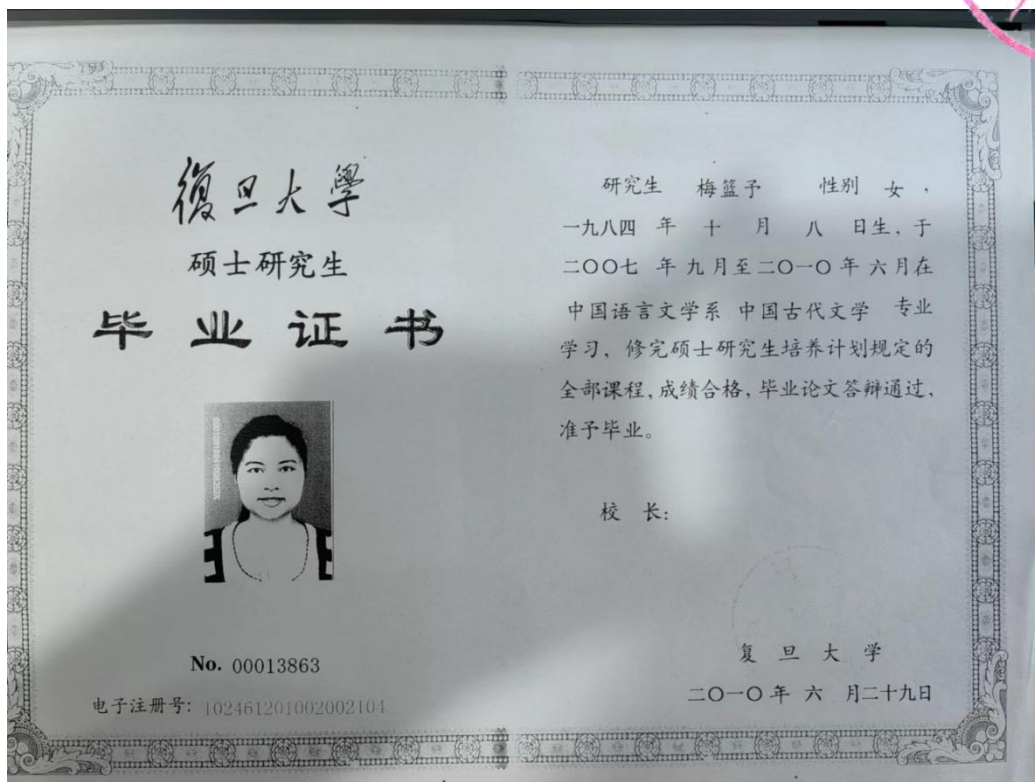 復旦大學
硕士研究生
毕业证书
No. 00013863
电子注册号: 102461201002002104
研究生 梅篮予 性别 女，
一九八四 年 十 月 八 日生，于
二〇〇七 年 九月至二〇一〇年 六月在
中国语言文学系 中国古代文学 专业
学习，修完硕士研究生培养计划规定的
全部课程，成绩合格，毕业论文答辩通过，
准予毕业。
校 长：
复 旦 大 学
二〇一〇年 六 月二十九日